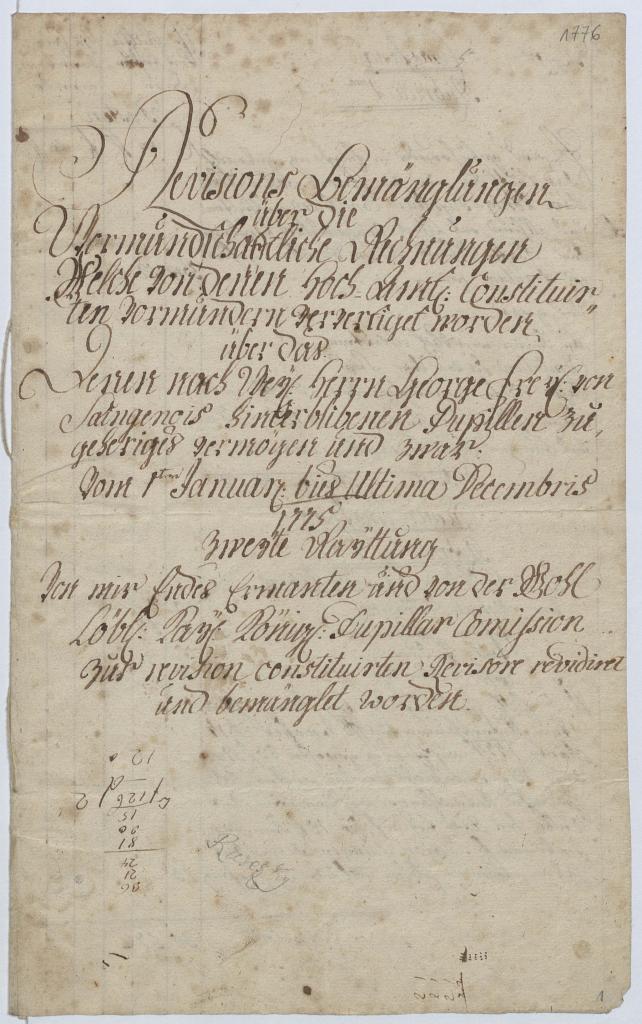 1776
Revisions Bemänglungen
über die
Vormundschaftliche Rechnungen
Welche von denen Hoch-Amtl: Constituir„
ten Vormündern verfertiget worden
über das
Jenen nach Herrn George Frey: von
hinterblibenen Pupillen zu„
gehöriges vermögen und zwar:
Vom 1ten Januar: bies Ultima Decembris
1775
zweyte Rayttung
Von mir Endes Ermanten und von der Wohl
Löbl: Kay: Königl: Pupillar Comission
zur revision constituirten Revisore revidiret
und bemänglet worden.
12
2
126
15
90
81
24
21
36
1